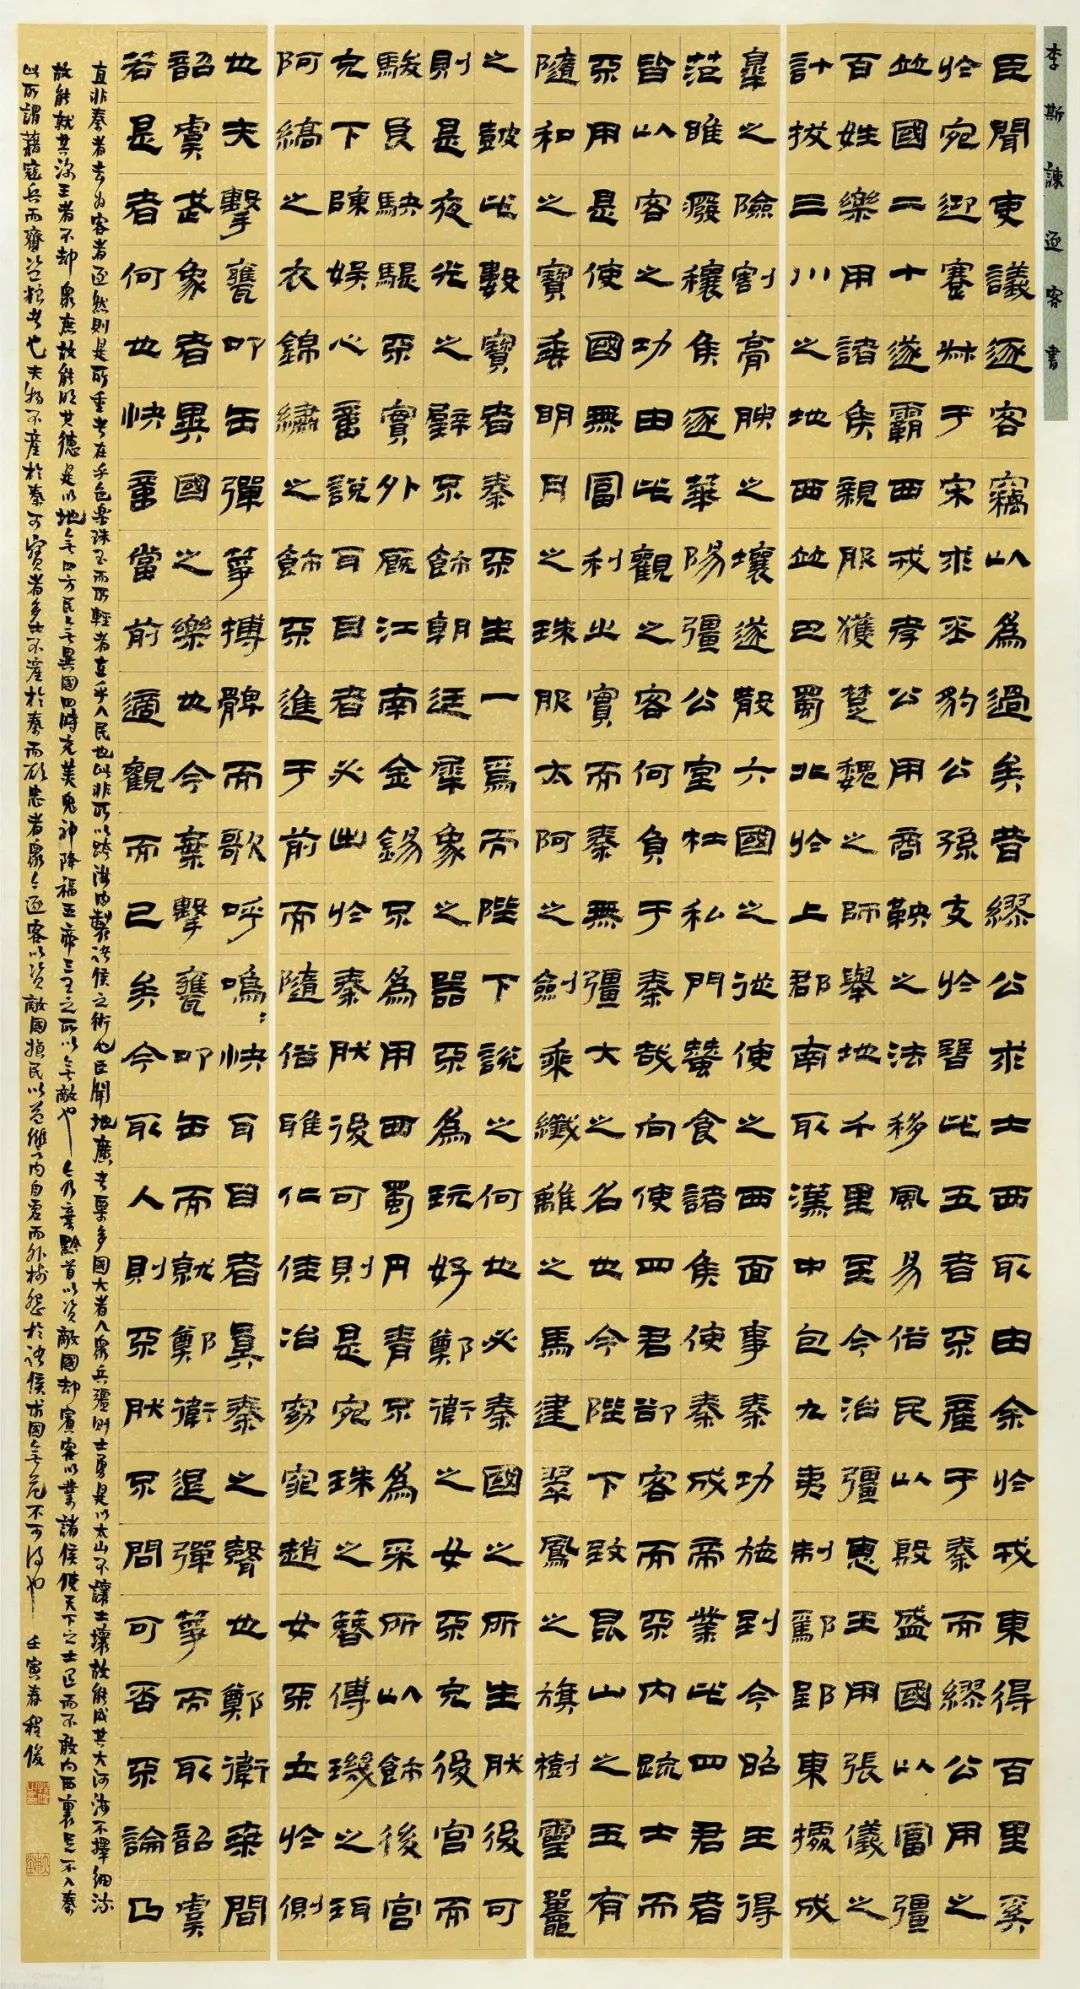 李斯諫逐客書
臣聞吏議逐客竊以為過矣昔繆公求士西取由余於戎東得百里奚
於宛迎蹇叔于宋求丕豹公孫支於晉此五者不產于秦而繆公用之
並國二十遂霸西戎孝公用商鞅之法移風易俗民以殷盛國以富彊
百姓樂用諸侯親服獲楚魏之師舉地千里至今治彊惠王用張儀之
計拔三川之地西並巴蜀北於上郡南取漢中包九夷制鄢郢東據成
皋之險割膏腴之壤遂散六國之從使之西面事秦功施到今昭王得
范雎廢穰侯逐華陽彊公室杜私門蠶食諸侯使秦成帝業此四君者
皆以客之功由此觀之客何負于秦哉向使四君卻客而不內疏士而
不用是使國無富利之實而秦無彊大之名也今陛下致昆山之玉有
隨和之寶垂明月之珠服太阿之劍乘纖離之馬建翠鳳之旗樹靈鼉
之鼓此數寶者秦不生一焉而陛下說之何也必秦國之所生然後可
則是夜光之璧不飾朝廷犀象之器不為玩好鄭衛之女不充後宮而
駿良駃騠不實外廄江南金錫不為用西蜀丹青不為采所以飾後宮
充下陳娛心意說耳目者必出於秦然後可則是宛珠之簪傅璣之珥
阿縞之衣錦繡之飾不進于前而隨俗雅化佳冶窈窕趙女不立於側
也夫擊甕叩缶彈箏搏髀而歌呼嗚〻快耳目者真秦之聲也鄭衛桑間
韶虞武象者異國之樂也今棄擊甕叩缶而就鄭衛退彈箏而取韶虞
若是者何也快意當前適觀而已矣今取人則不然不問可否不論曲
直非秦者去為客者逐然則是所重者在乎色樂珠玉而所輕者在乎人民也此非所以跨海內製諸侯之術也臣聞地廣者粟多國大者人衆兵彊則士勇是以太山不讓土壤故能成其大河海不擇細流
故能就其深王者不却衆庶故能明其德是以地無四方民無異國四時充美鬼神降福五帝三王之所以無敵也今乃棄黔首以資敵國却賓客以業諸侯使天下之士退而不敢向西裹足不入秦
此所謂藉寇兵而齎盜糧者也夫物不產於秦可寶者多士不產於秦而願忠者衆今逐客以資敵國損民以益讎內自虛而外樹怨於諸侯求國無危不可得也 壬寅春程俊